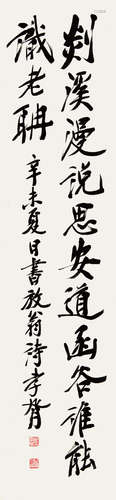 剡溪漫说思安道函谷谁能
識老聃
辛未夏日书放翁诗孝胥